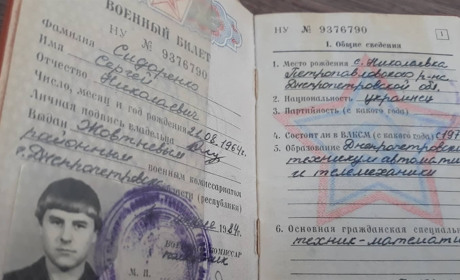 ВОЕННЫЙ БИЛЕТ
НУ № 9376790
Фамилия Сидоренко
Имя Сергей
Отчество Николаевич
Число, месяц и год рождения 21.08.1964г.
Личная подпись владельца
Выдан Жовтневым
районным военным комиссариатом
г. Днепропетровска
1984 г.
М. П.
НУ № 9376790
1
I. Общие сведения
1. Место рождения с. Николаевка
Петропавловского р-на
Днепропетровской обл.
2. Национальность украинец
3. Партийность (с какого года)
4. Состоит ли в ВЛКСМ (с какого года)
5. Образование Днепропетровский
техникум автоматики
и телемеханики
6. Основная гражданская
техник-